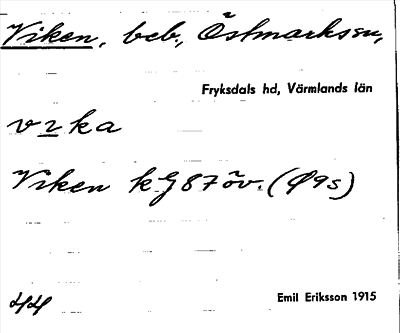 Viken, beb., Östmarks sn,
Fryksdals hd, Värmlands län
v2ka
Viken kG 87 öv. (Ø9s)
44
Emil Eriksson 1915